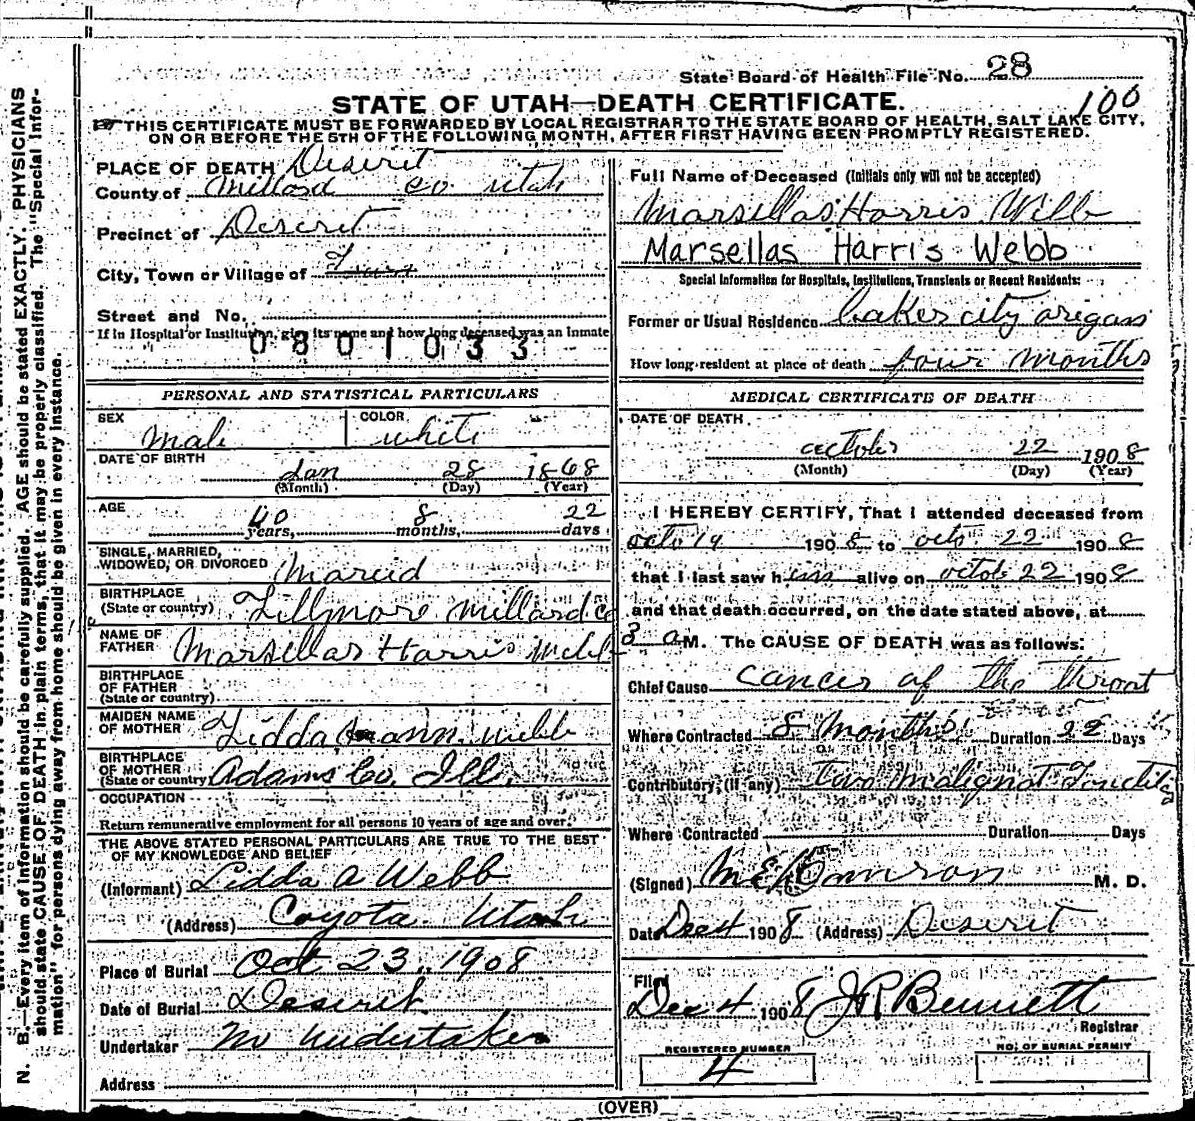 State Board of Health File No. 28
100
STATE OF UTAH—DEATH CERTIFICATE.
THIS CERTIFICATE MUST BE FORWARDED BY LOCAL REGISTRAR TO THE STATE BOARD OF HEALTH, SALT LAKE CITY,
ON OR BEFORE THE 5TH OF THE FOLLOWING MONTH, AFTER FIRST HAVING BEEN PROMPTLY REGISTERED.
PLACE OF DEATH Deseret
County of Millard Co. Utah
Precinct of Deseret
City, Town or Village of
Street and No.
If in Hospital or Institution, give its name and how long deceased was an Inmate
0801033
PERSONAL AND STATISTICAL PARTICULARS
SEX Male COLOR white
DATE OF BIRTH
Jan 28 1868
(Month) (Day) (Year)
AGE
40 years, 8 months, 22 days
SINGLE, MARRIED,
WIDOWED, OR DIVORCED Maried
BIRTHPLACE
(State or country) Fillmore Millard Co
NAME OF
FATHER Marsellas Harris Webb
BIRTHPLACE
OF FATHER
(State or country)
MAIDEN NAME
OF MOTHER Lidda ann webb
BIRTHPLACE
OF MOTHER
(State or country) Adams Co. Ill.
OCCUPATION
Return remunerative employment for all persons 10 years of age and over.
THE ABOVE STATED PERSONAL PARTICULARS ARE TRUE TO THE BEST
OF MY KNOWLEDGE AND BELIEF
(Informant) Lidda A Webb
(Address) Coyota Utah
Place of Burial Oct 23, 1908
Date of Burial Deseret
Undertaker No Undertaker
Address
Full Name of Deceased (Initials only will not be accepted)
Marsellas Harris Webb
Marsellas Harris Webb
Special Information for Hospitals, Institutions, Transients or Recent Residents:
Former or Usual Residence baker city origan
How long resident at place of death four months
MEDICAL CERTIFICATE OF DEATH
DATE OF DEATH
october 22 1908
(Month) (Day) (Year)
I HEREBY CERTIFY, That I attended deceased from
octo 19 1908 to octo 22 1908
that I last saw him alive on octob 22 1908
and that death occurred, on the date stated above, at
3 a M. The CAUSE OF DEATH was as follows:
Chief Cause cancer of the throat
Where Contracted 8 Months Duration 22 Days
Contributory, (if any) two malignat
Where Contracted Duration Days
(Signed) M. D.
Date Dec 4 1908 (Address) Deseret
Filed
Dec 4 1908 J R Bennett
Registrar
REGISTERED NUMBER
4
NO. OF BURIAL PERMIT
(OVER)
N. B.—Every item of information should be carefully supplied. AGE should be stated EXACTLY. PHYSICIANS
should state CAUSE OF DEATH in plain terms, that it may be properly classified. The "Special Infor-
mation" for persons dying away from home should be given in every instance.